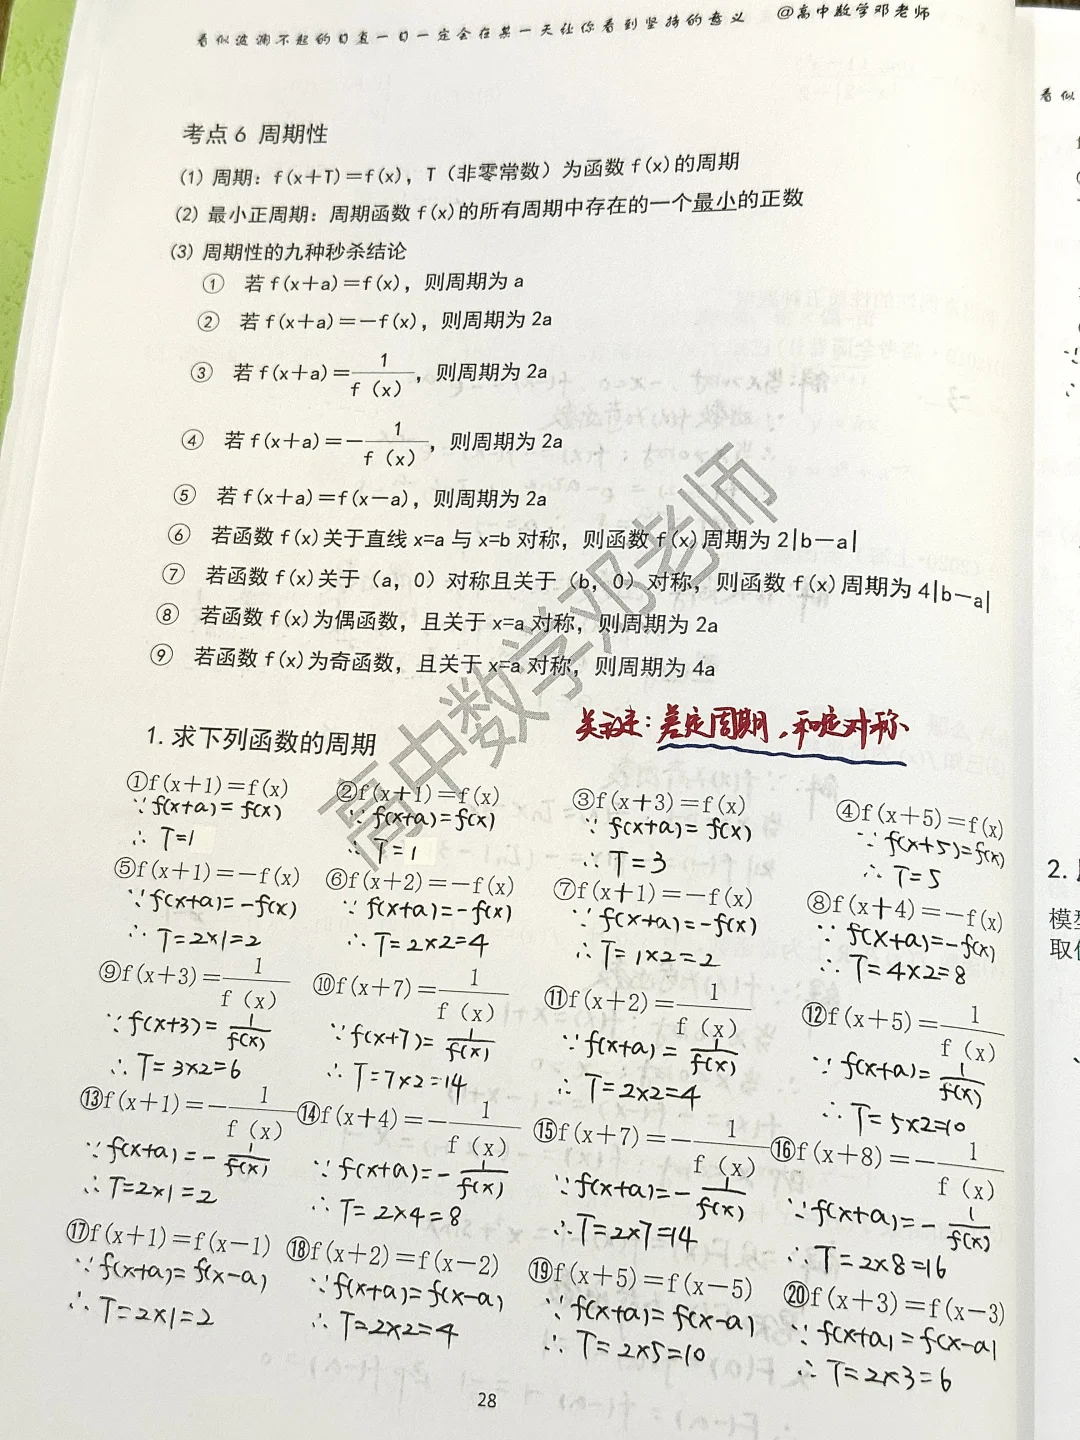 看似波澜不起的日复一日一定会在某一天让你看到坚持的意义 @高中数学邓老师
考点6 周期性
(1) 周期：f(x+T)=f(x)，T（非零常数）为函数f(x)的周期
(2) 最小正周期：周期函数f(x)的所有周期中存在的一个最小的正数
(3) 周期性的九种秒杀结论
① 若f(x+a)=f(x)，则周期为a
② 若f(x+a)=-f(x)，则周期为2a
③ 若f(x+a)=1/f（x），则周期为2a
④ 若f(x+a)=-1/f（x），则周期为2a
⑤ 若f(x+a)=f(x-a)，则周期为2a
⑥ 若函数f(x)关于直线x=a与x=b对称，则函数f(x)周期为2|b-a|
⑦ 若函数f(x)关于（a，0）对称且关于（b，0）对称，则函数f(x)周期为4|b-a|
⑧ 若函数f(x)为偶函数，且关于x=a对称，则周期为2a
⑨ 若函数f(x)为奇函数，且关于x=a对称，则周期为4a
高中数学邓老师
关键：差定周期，和定对称
1.求下列函数的周期
①f(x+1)=f(x) ②f(x+1)=f(x) ③f(x+3)=f(x) ④f(x+5)=f(x)
∵f(x+a)=f(x) ∵f(x+a)=f(x) ∵f(x+a)=f(x) ∵f(x+5)=f(x)
∴T=1 ∴T=1 ∴T=3 ∴T=5
⑤f(x+1)=-f(x) ⑥f(x+2)=-f(x) ⑦f(x+1)=-f(x) ⑧f(x+4)=-f(x)
∵f(x+a)=-f(x) ∵f(x+a)=-f(x) ∵f(x+a)=-f(x) ∵f(x+a)=-f(x)
∴T=2×1=2 ∴T=2×2=4 ∴T=1×2=2 ∴T=4×2=8
⑨f(x+3)=1/f（x） ⑩f(x+7)=1/f（x） ⑪f(x+2)=1/f（x） ⑫f(x+5)=1/f（x）
∵f(x+3)=1/f(x) ∵f(x+7)=1/f(x) ∵f(x+a)=1/f(x) ∵f(x+a)=1/f(x)
∴T=3×2=6 ∴T=7×2=14 ∴T=2×2=4 ∴T=5×2=10
⑬f(x+1)=-1/f（x） ⑭f(x+4)=-1/f（x） ⑮f(x+7)=-1/f（x） ⑯f(x+8)=-1/f（x）
∵f(x+a)=-1/f(x) ∵f(x+a)=-1/f(x) ∵f(x+a)=-1/f(x) ∵f(x+a)=-1/f(x)
∴T=2×1=2 ∴T=2×4=8 ∴T=2×7=14 ∴T=2×8=16
⑰f(x+1)=f(x-1) ⑱f(x+2)=f(x-2) ⑲f(x+5)=f(x-5) ⑳f(x+3)=f(x-3)
∵f(x+a)=f(x-a) ∵f(x+a)=f(x-a) ∵f(x+a)=f(x-a) ∵f(x+a)=f(x-a)
∴T=2×1=2 ∴T=2×2=4 ∴T=2×5=10 ∴T=2×3=6
28
看似
2.
模型
取